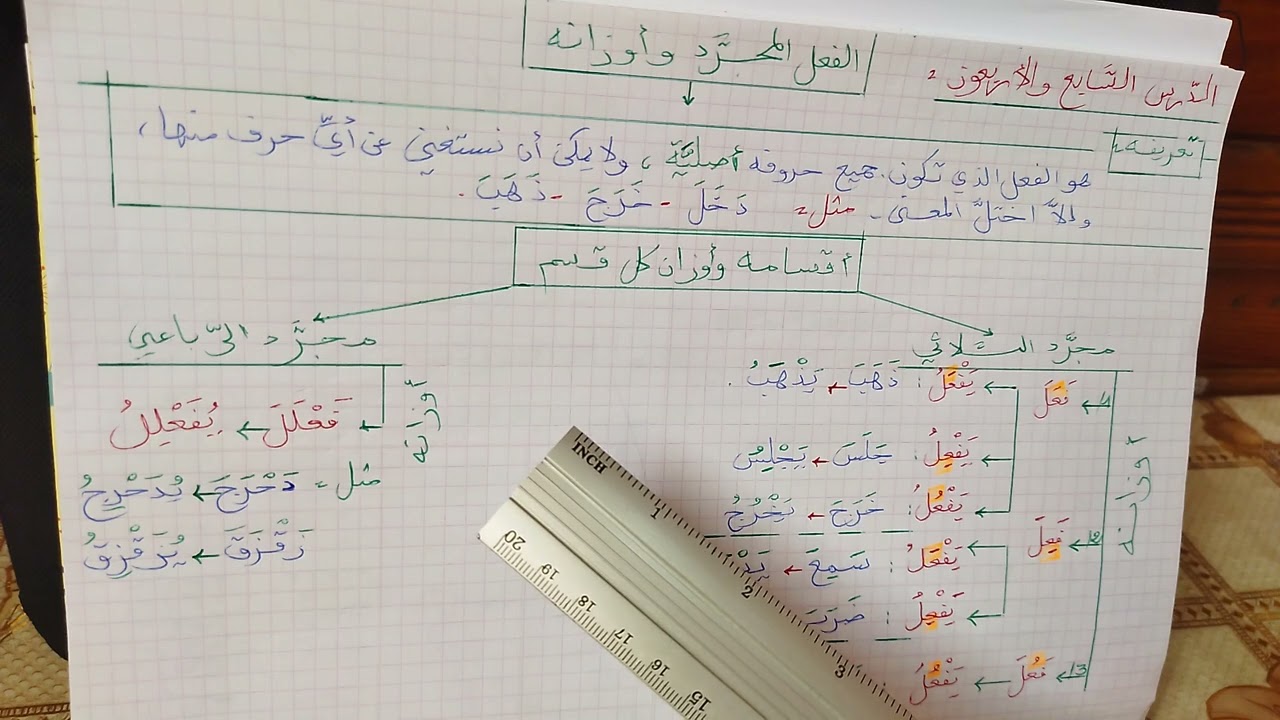 الدّرس السّابع والأربعون:
الفعل المجرَّد وأوزانه
تعريفه:
هو الفعل الذي تكون جميع حروفه أصليّة، ولا يمكن أن نستغني عن أيِّ حرف منها،
وإلاَّ اختلَّ المعنى. مثل: دَخَلَ - خَرَجَ - ذَهَبَ.
أقسامه وأوزان كل قسم
مجرَّد الثّلاثي
أوزانه
1 فَعَلَ
يَفْعَلُ: ذَهَبَ يَذْهَبُ.
يَفْعِلُ: جَلَسَ يَجْلِسُ
يَفْعُلُ: خَرَجَ يَخْرُجُ
2 فَعِلَ
يَفْعَلُ: سَمِعَ
يَفْعِلُ:
3 فَعُلَ يَفْعُلُ
مجرَّد الرّباعي
أوزانه
فَعْلَلَ يُفَعْلِلُ
مثل: دَحْرَجَ يُدَحْرِجُ
زَقْزَقَ يُزَقْزِقُ
INCH
1
2
3
20
19
18
17
16
15